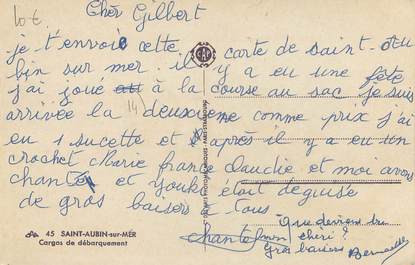 10 €
Cher Gilbert
je t'envoie cette carte de saint-Au
bin sur mer. il y a eu une fête
j'ai joué à la course au sac je suis
arrivée la deuxième comme prix j'ai
eu 1 sucette et après il y a eu un
crochet Marie france Claudie et moi avons
chanté et Youki était deguisé
de gros baisers à tous
Que deviens tu
mon chéri ?
Gros baisers
45 SAINT-AUBIN-sur-MER
Cargos de débarquement